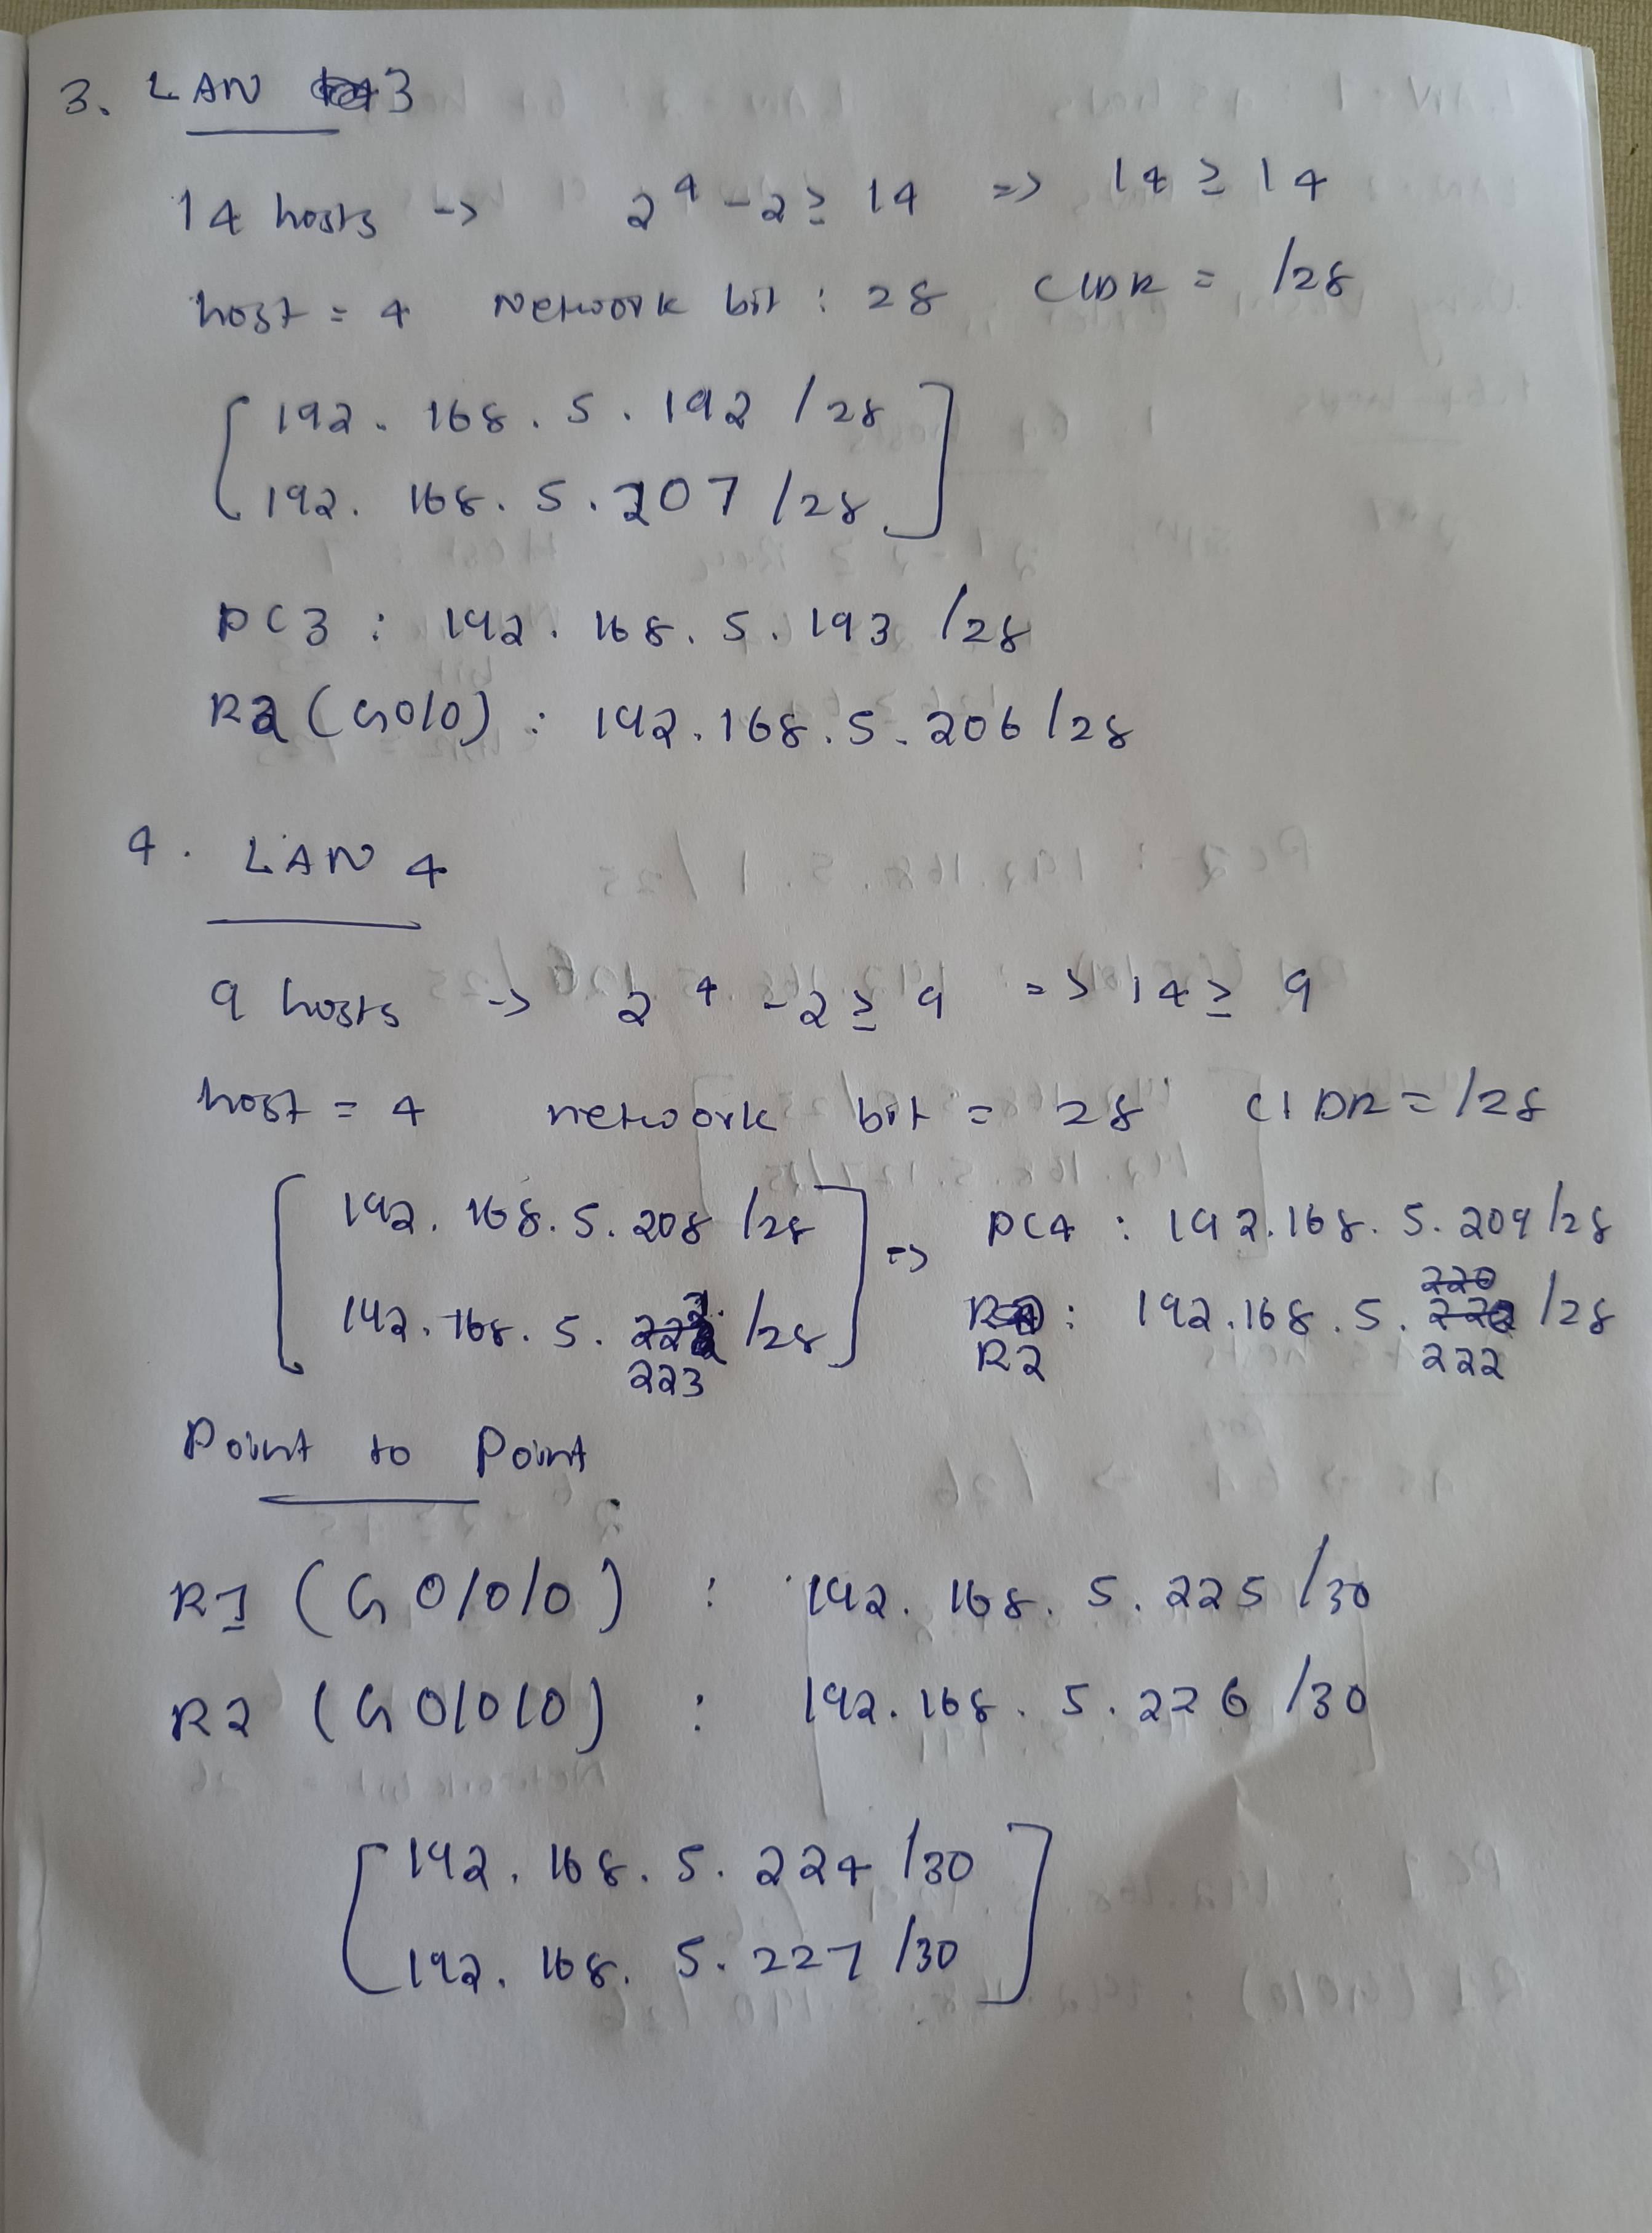 3. LAN 3
14 hosts -> 2^4 - 2 ≥ 14 => 14 ≥ 14
host = 4 Network bit : 28 CIDR = /28
192. 168. 5. 192 /28
192. 168. 5. 207 /28
PC3 : 192. 168. 5. 193 /28
R2 (G0/0) : 192.168.5.206/28
4. LAN 4
9 hosts -> 2^4 - 2 ≥ 9 => 14 ≥ 9
host = 4 network bit = 28 CIDR = /28
192. 168. 5. 208 /28 => PC4 : 192.168.5.209/28
192. 168. 5. 223 /28 R2 : 192.168.5. 222 /28
Point to Point
R1 (G0/0/0) : 192. 168. 5. 225 /30
R2 (G0/0/0) : 192. 168. 5. 226 /30
192. 168. 5. 224 /30
192. 168. 5. 227 /30